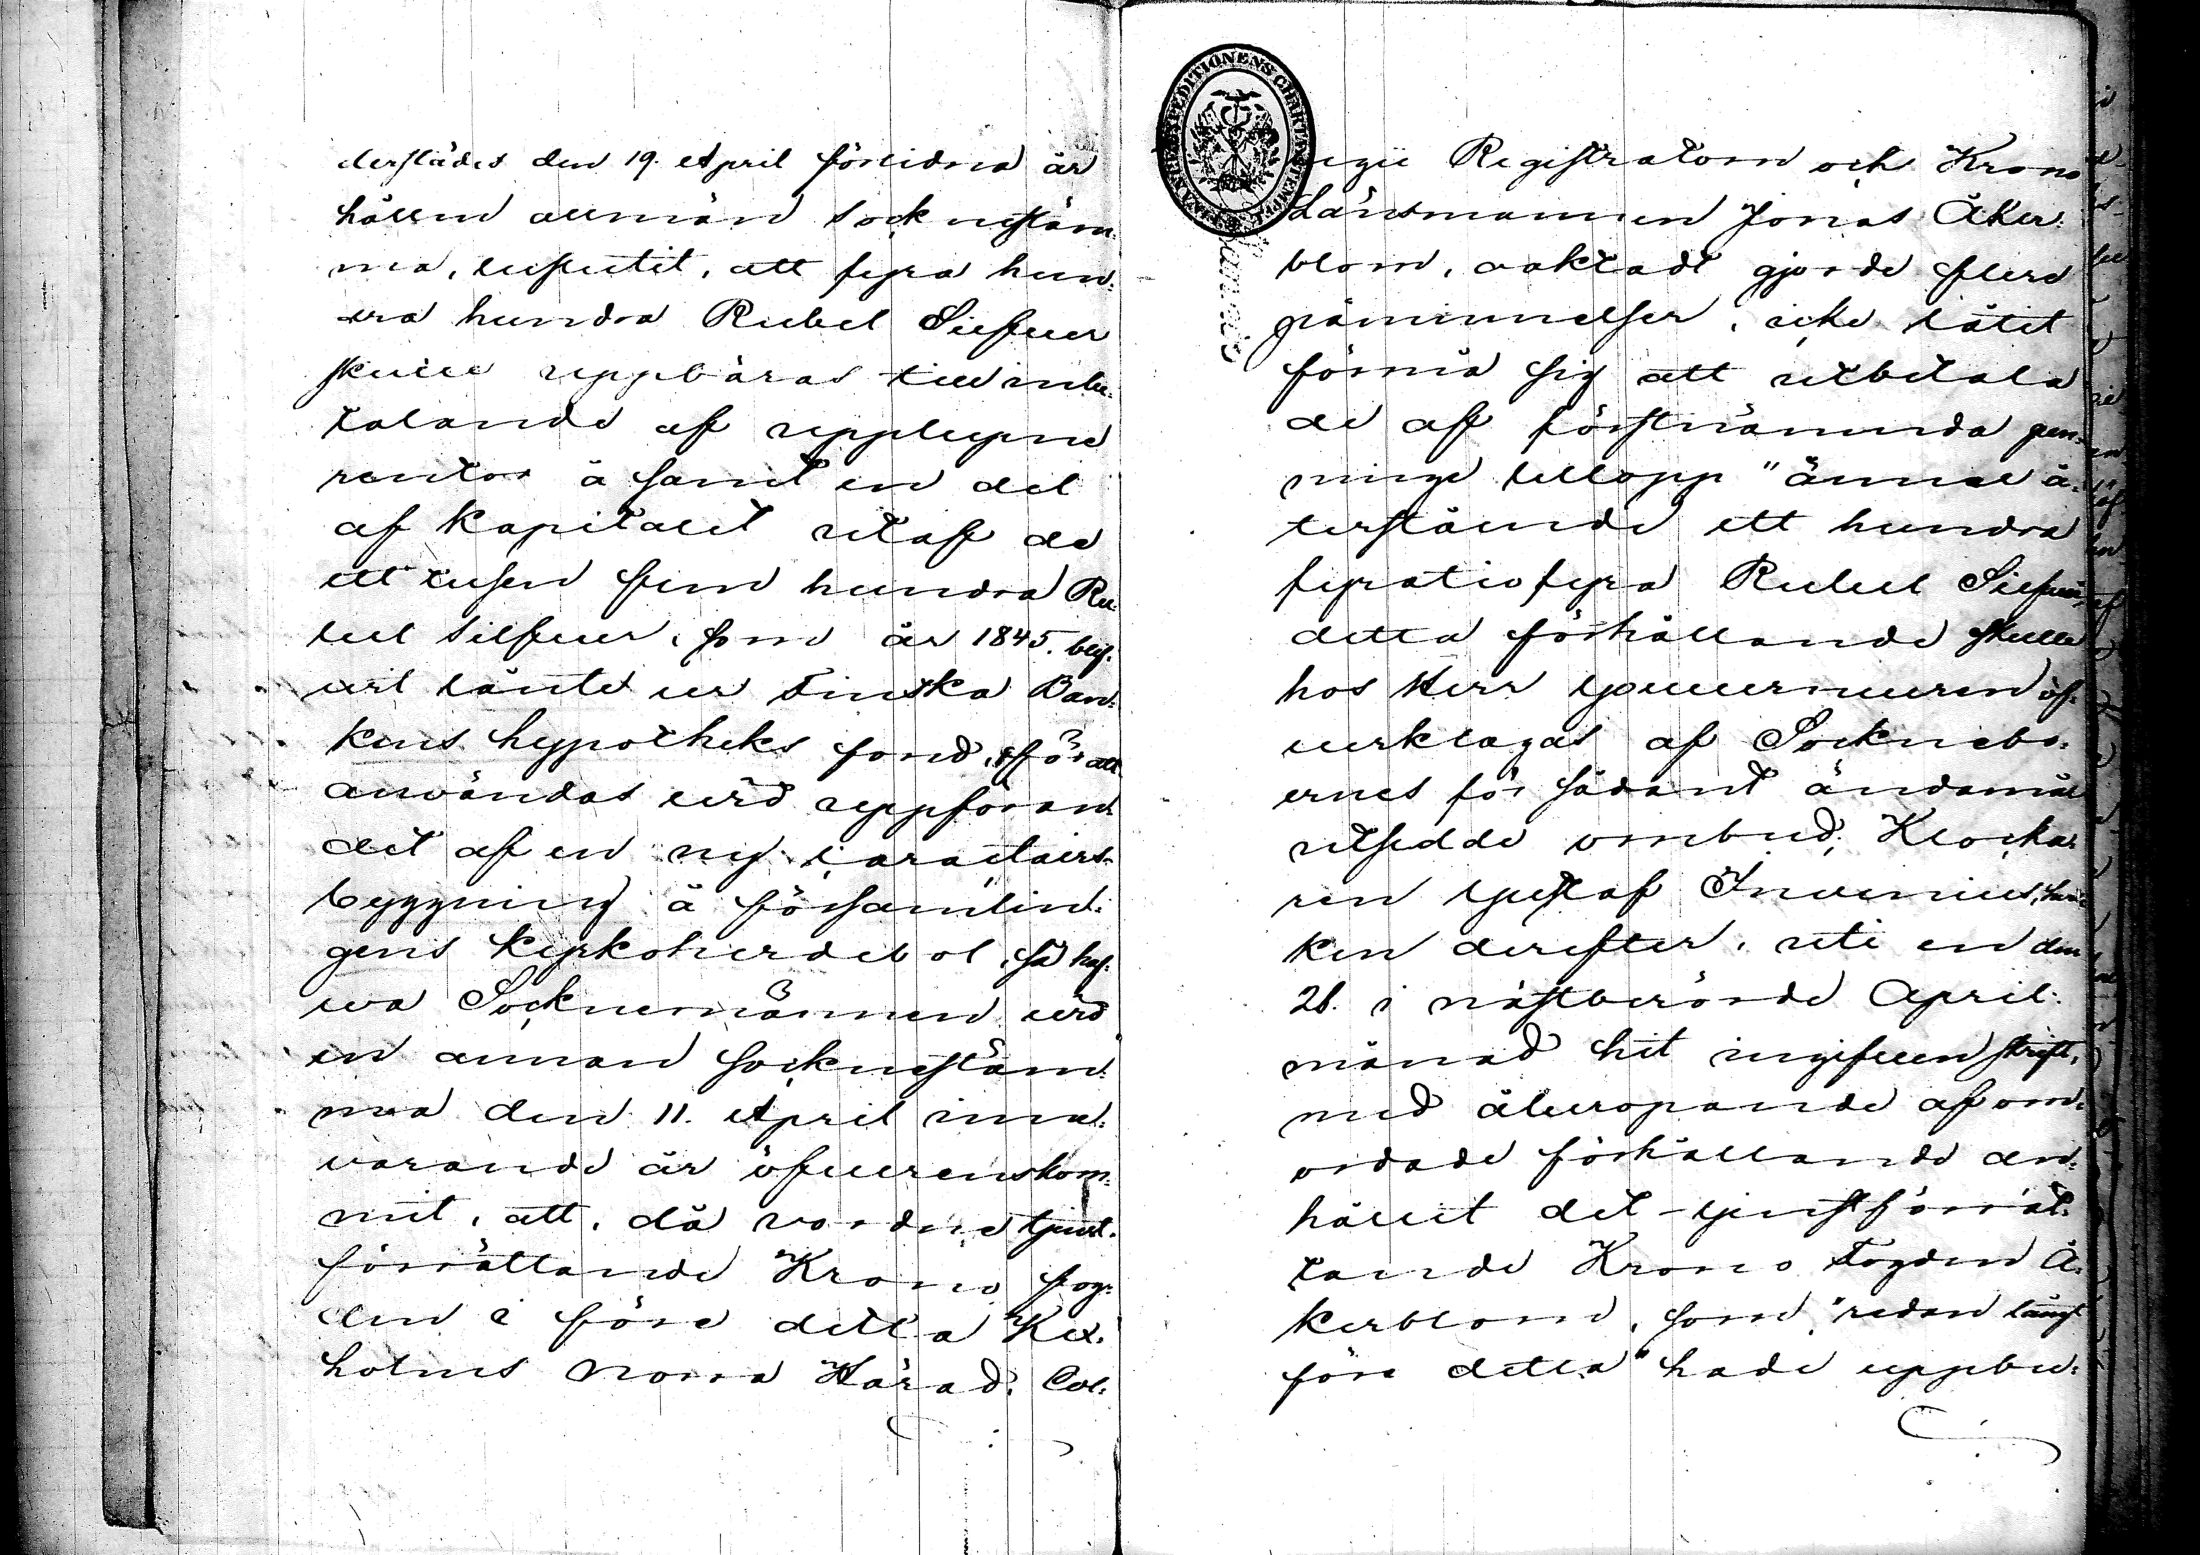 derstädes den 19. April förlidna år
hållen allmän Socknestäm¬
ma, beslutit, att fyra hun¬
dra hundra Rubel Silfver
skulle uppbäras till inbe¬
talande af upplupne
räntor å samt en del
af kapitalet utaf de
ett tusen fem hundra Ru¬
bel Silfver, som år 1845. blif¬
vit lånte ur Finska Ban¬
kens hypotheks fond, för att
användas vid uppföran¬
det af en ny karaktairs¬
byggning å församlin¬
gens kyrkoherdebol, så haf¬
va Socknemännen vid
en annan Socknestäm¬
ma den 11. April inne¬
varande år öfverenskom¬
mit, att, då vordne tjenst¬
förrättande Krono fog¬
den i före detta Kex¬
holms Norra Härad, Col¬
legii Registratorn och Krono
Länsmannen Jonas Åker¬
blom, oaktadt gjorde flere
påminnelser, icke låtit
förmå sig att utbetala
de af förstnämnda pen¬
ninge bellopp "ännu å¬
terstående ett hundra
fyratiofyra Rubel Silfver,
detta förhållande skulle
hos Herr Gouverneuren öf¬
verklagas af Sockneboe¬
ernes för sådant ändamål
utsedde ombud, Klocka¬
ren Gustaf Invenius, hvil¬
ken derefter, uti en den
26. i nästberörde April
månad hit ingifven skrift,
med åberopande af om¬
ordade förhållande an¬
hållit det tjenstförrät¬
tande Krono Fogden Å¬
kerblom, som "redan långt
före detta" hade uppbu¬